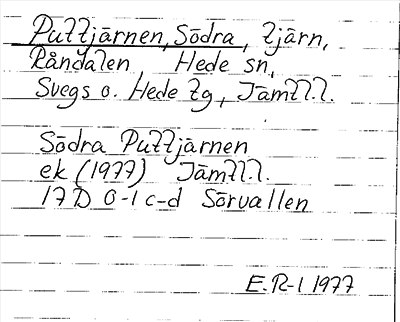 Puttjärnen, Södra, tjärn,
Råndalen Hede sn,
Svegs o. Hede tg, Jämtl.l.
Södra Puttjärnen
ek (1977) Jämtl.l.
17D 0-1 c-d Sörvallen
E.R-l 1977